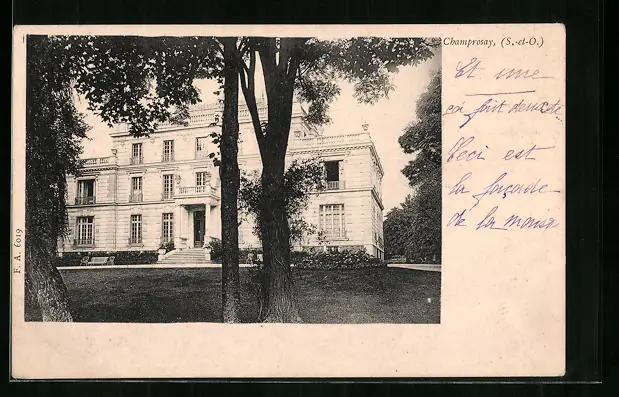 Champrosay, (S.-et-O.)
Et une
fait
Ceci est
la façade
de la
F. A. 6019